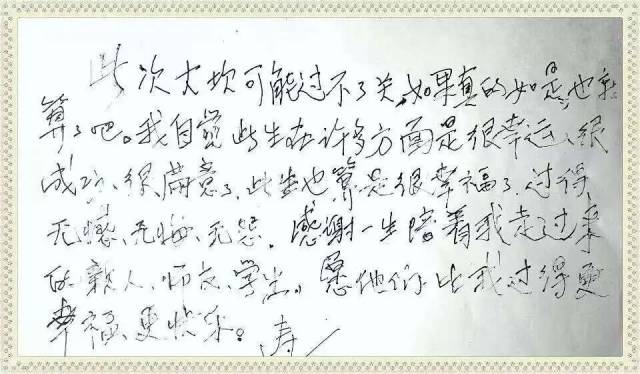 此次大坎可能过不了关,如果真的如是,也就
算了吧。我自觉此生在许多方面是很幸运、很
成功、很满意了,此生也算是很幸福了,过得
无憾、无悔、无怨。感谢一生陪着我走过来
的亲人、师友、学生。愿他们比我过得更
幸福、更快乐。涛